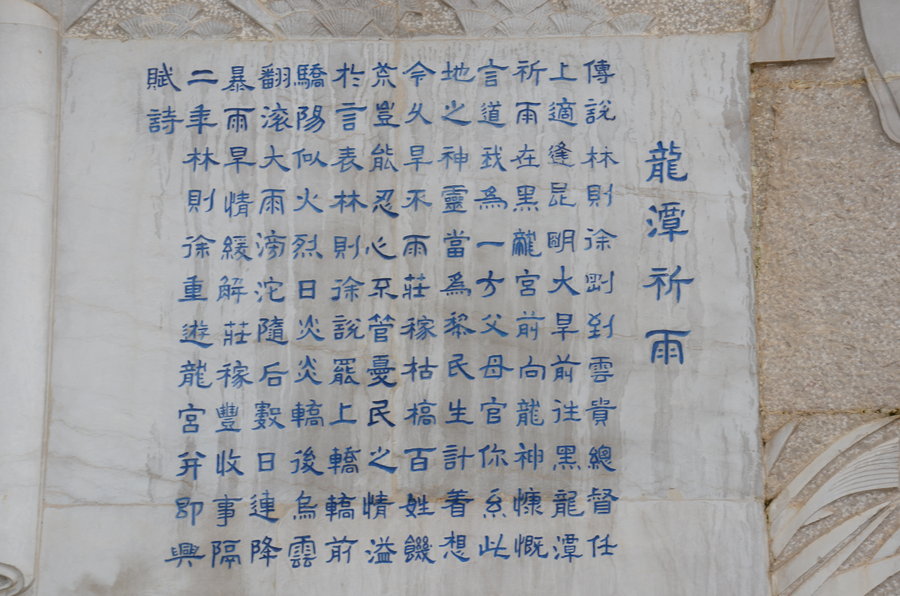 龍潭祈雨
傳說林則徐剛到雲貴總督任
上適逢昆明大旱前往黑龍潭
祈雨在黑龍宮前向龍神慷慨
言道我為一方父母官你系此
地之神靈當為黎民生計着想
今久旱不雨莊稼枯槁百姓饑
荒豈能忍心不管憂民之情溢
於言表林則徐說罷上轎轎前
驕陽似火烈日炎炎轎後烏雲
翻滚大雨滂沱隨后數日連降
暴雨旱情緩解莊稼豐收事隔
二年林則徐重遊龍宮并即興
賦詩